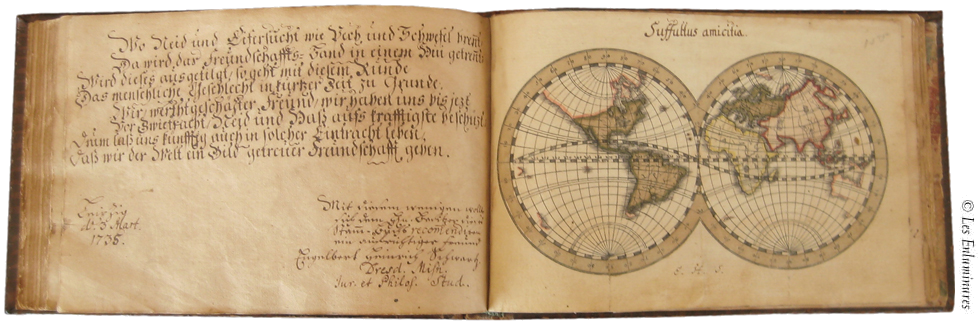 Wo Neid und Eifersucht wie Pech und Schwefel brent
Da wird das Freundschaffts-Band in einem Nun getrent
Wird dieses ausgetilgt, so geht mit diesem Runde
Das menschliche Geschlecht in kurtzer Zeit zu Grunde.
Wir, werthgeschätzter Freund, wir haben uns bis jezt
Vor Zwietracht, Neid und Haß aufs kräfftigste beschüzt
Drum laß uns künfftig auch in solcher Eintracht leben,
Daß wir der Welt ein Bild getreuer Freundschafft geben.
Leipzig
d. 3 Mart.
1738.
Mit diesem wenigen
sich dem
Stamm recomendiren
ein aufrichtiger Freund
Engelbert Heinrich Schwartz
Dresd. Misn.
Jur. et Philos. Stud.
Suffultus amicitia.
© Les Enluminures